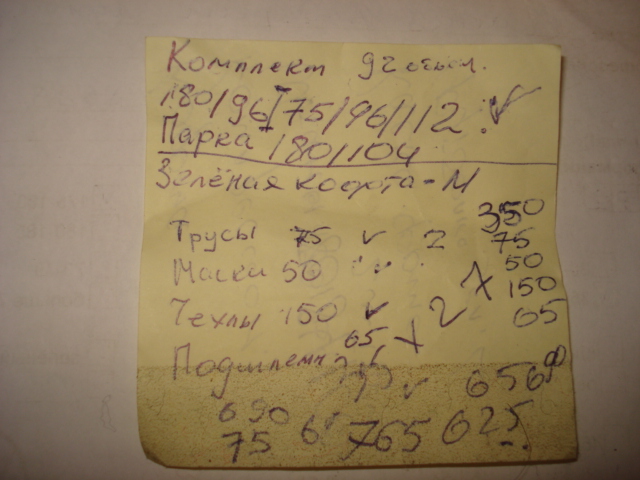 Комплект
180/96/75/96/112 ✓
Парка 180/104
Зелёная кофта-М
350
Трусы 75 ✓ 2 75
Маски 50 50
Чехлы 150 ✓ 2 150
65 65
Подшлемн
690
75 765 625